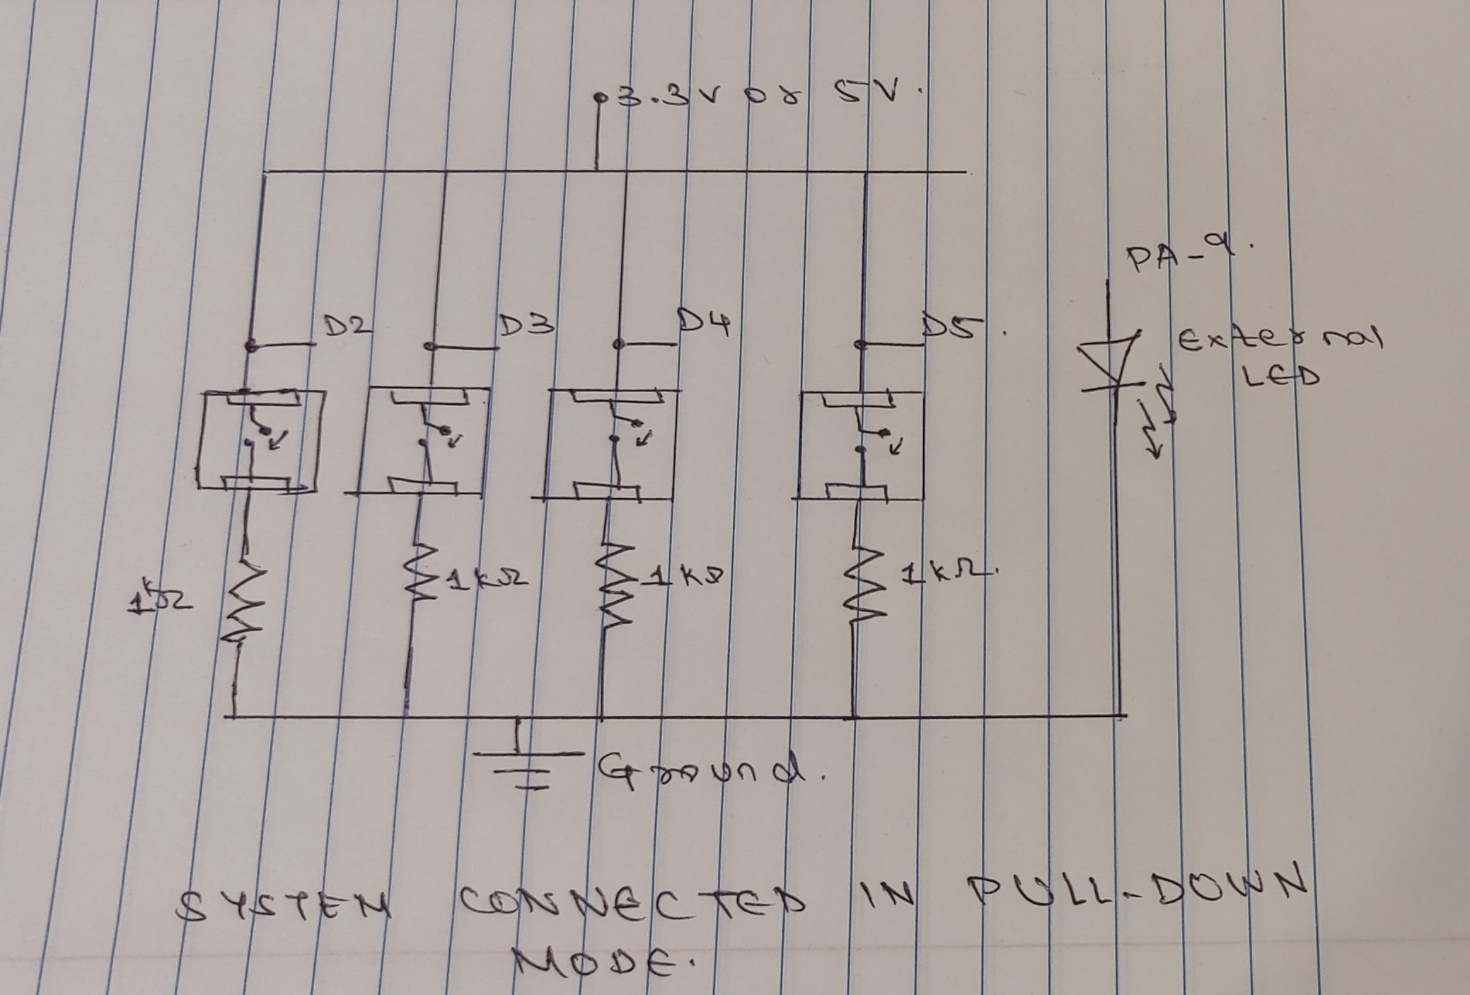 3.3V or 5V.
PA-9.
D2
D3
D4
D5.
External
LED
1kΩ
1kΩ
1kΩ
1kΩ.
Ground.
SYSTEM CONNECTED IN PULL-DOWN
MODE.